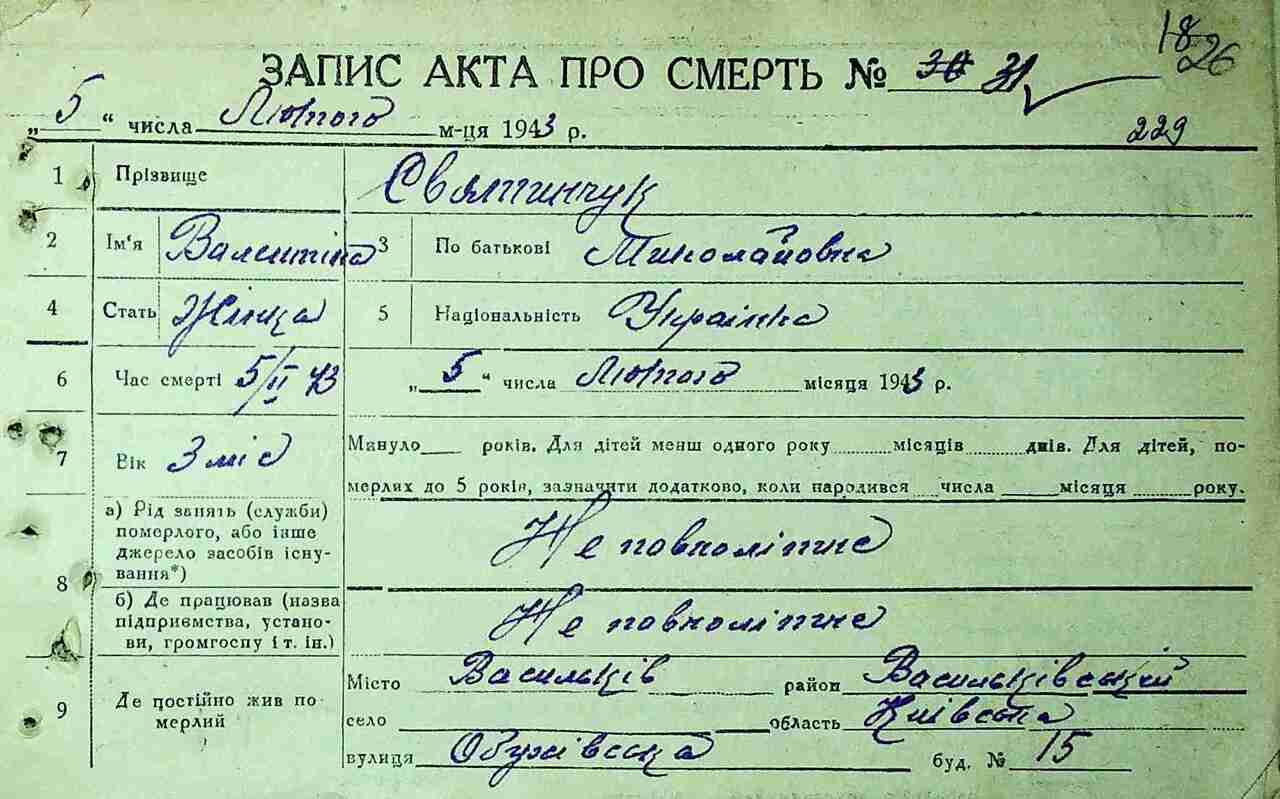 18 26
ЗАПИС АКТА ПРО СМЕРТЬ № 30 31
„5“ числа Лютого м-ця 1943 р.
229
1 Прізвище Святинчук
2 Ім'я Валентіна 3 По батькові Миколайовна
4 Стать Жінка 5 Національність Українка
6 Час смерті 5/II 43 „5“ числа Лютого місяця 1943 р.
7 Вік 3 міс Минуло років. Для дітей менш одного року місяців днів. Для дітей, по-
мерлих до 5 років, зазначити додатково, коли народився числа місяця року.
8 а) Рід занять (служби)
померлого, або інше
джерело засобів існу-
вання*)
Не повнолітне
б) Де працював (назва
підприємства, устано-
ви, громгоспу і т. ін.)
Не повнолітне
9 Де постійно жив по-
мерлий
Місто Васильків район Васильківський
село область Київська
вулиця Обухівська буд. № 15